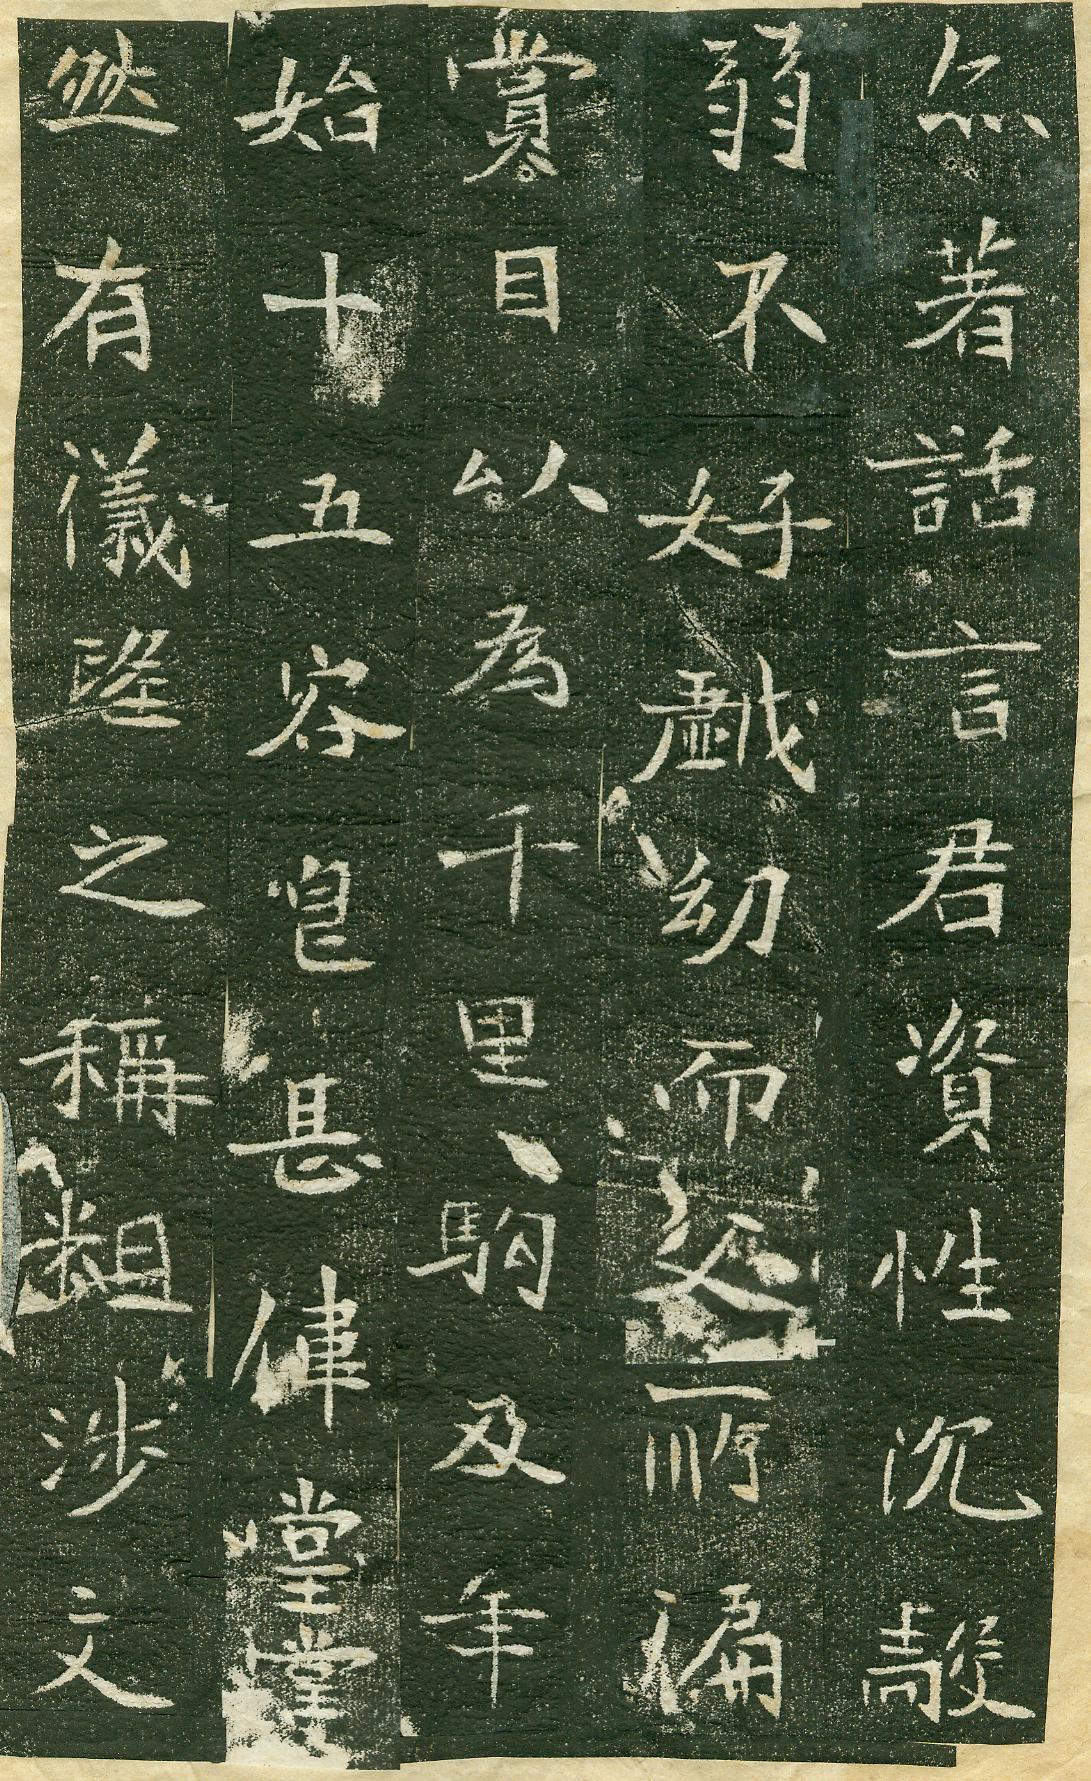 著話言君資性沉毅
弱不好戲幼而父所偏
賞目以為千里駒及年
始十五容皃甚偉堂堂
然有儀之稱粗涉文